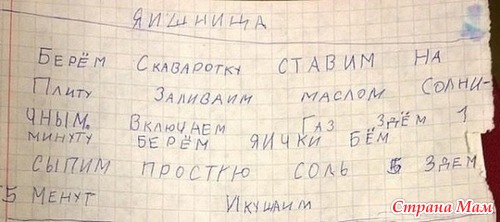 ЯИШНИЦА
БЕРЁМ СКАВАРОТКУ СТАВИМ НА
ПЛИТУ ЗАЛИВАИМ МАСЛОМ СОЛНИ-
ЧНЫМ. ВКЛЮЧАЕМ ГАЗ ЗДЁМ 1
МИНУТУ БЕРЁМ ЯИЧКИ БЁМ
СЫПИМ ПРОСТУЮ СОЛЬ 5 ЗДЕМ
5 МЕНУТ ИКУШАИМ
Страна Мам